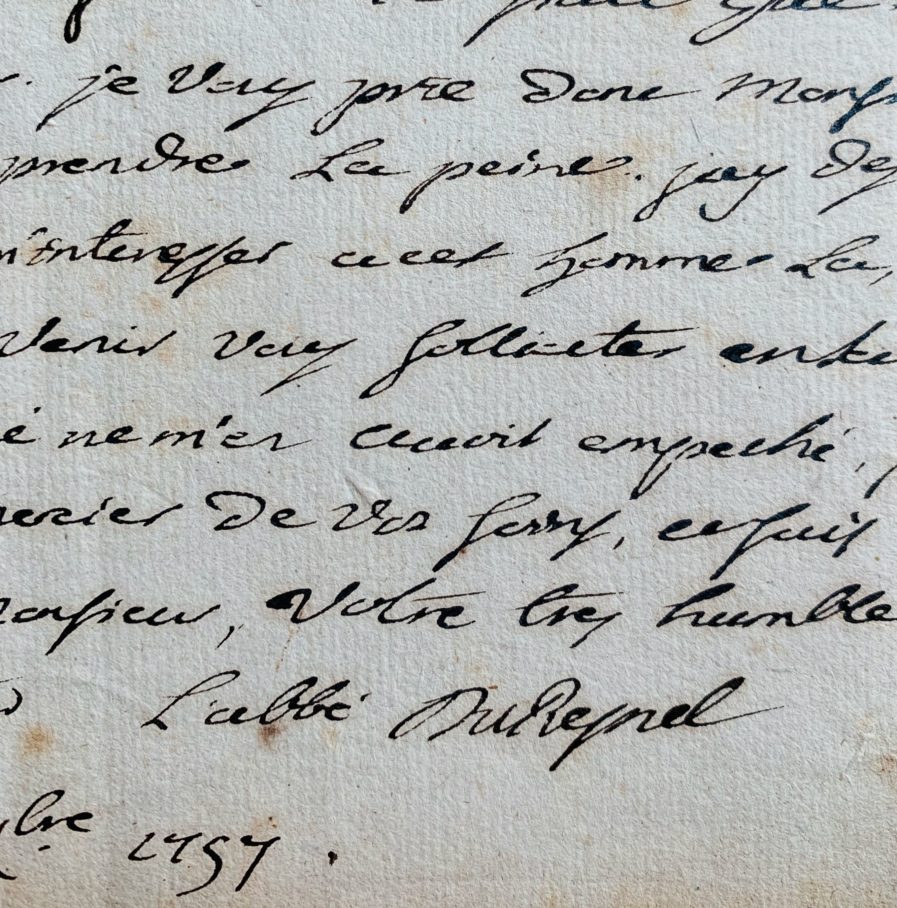 je vous prie donc Mons
prendre La peine. jay de
m'interesser acet homme La,
Venir vous solliciter en
é ne m'en auoit empeché,
mercier de vos soins, ce suis
monsieur, Votre tres humble
L'abbé DuResnel
bre 1757.